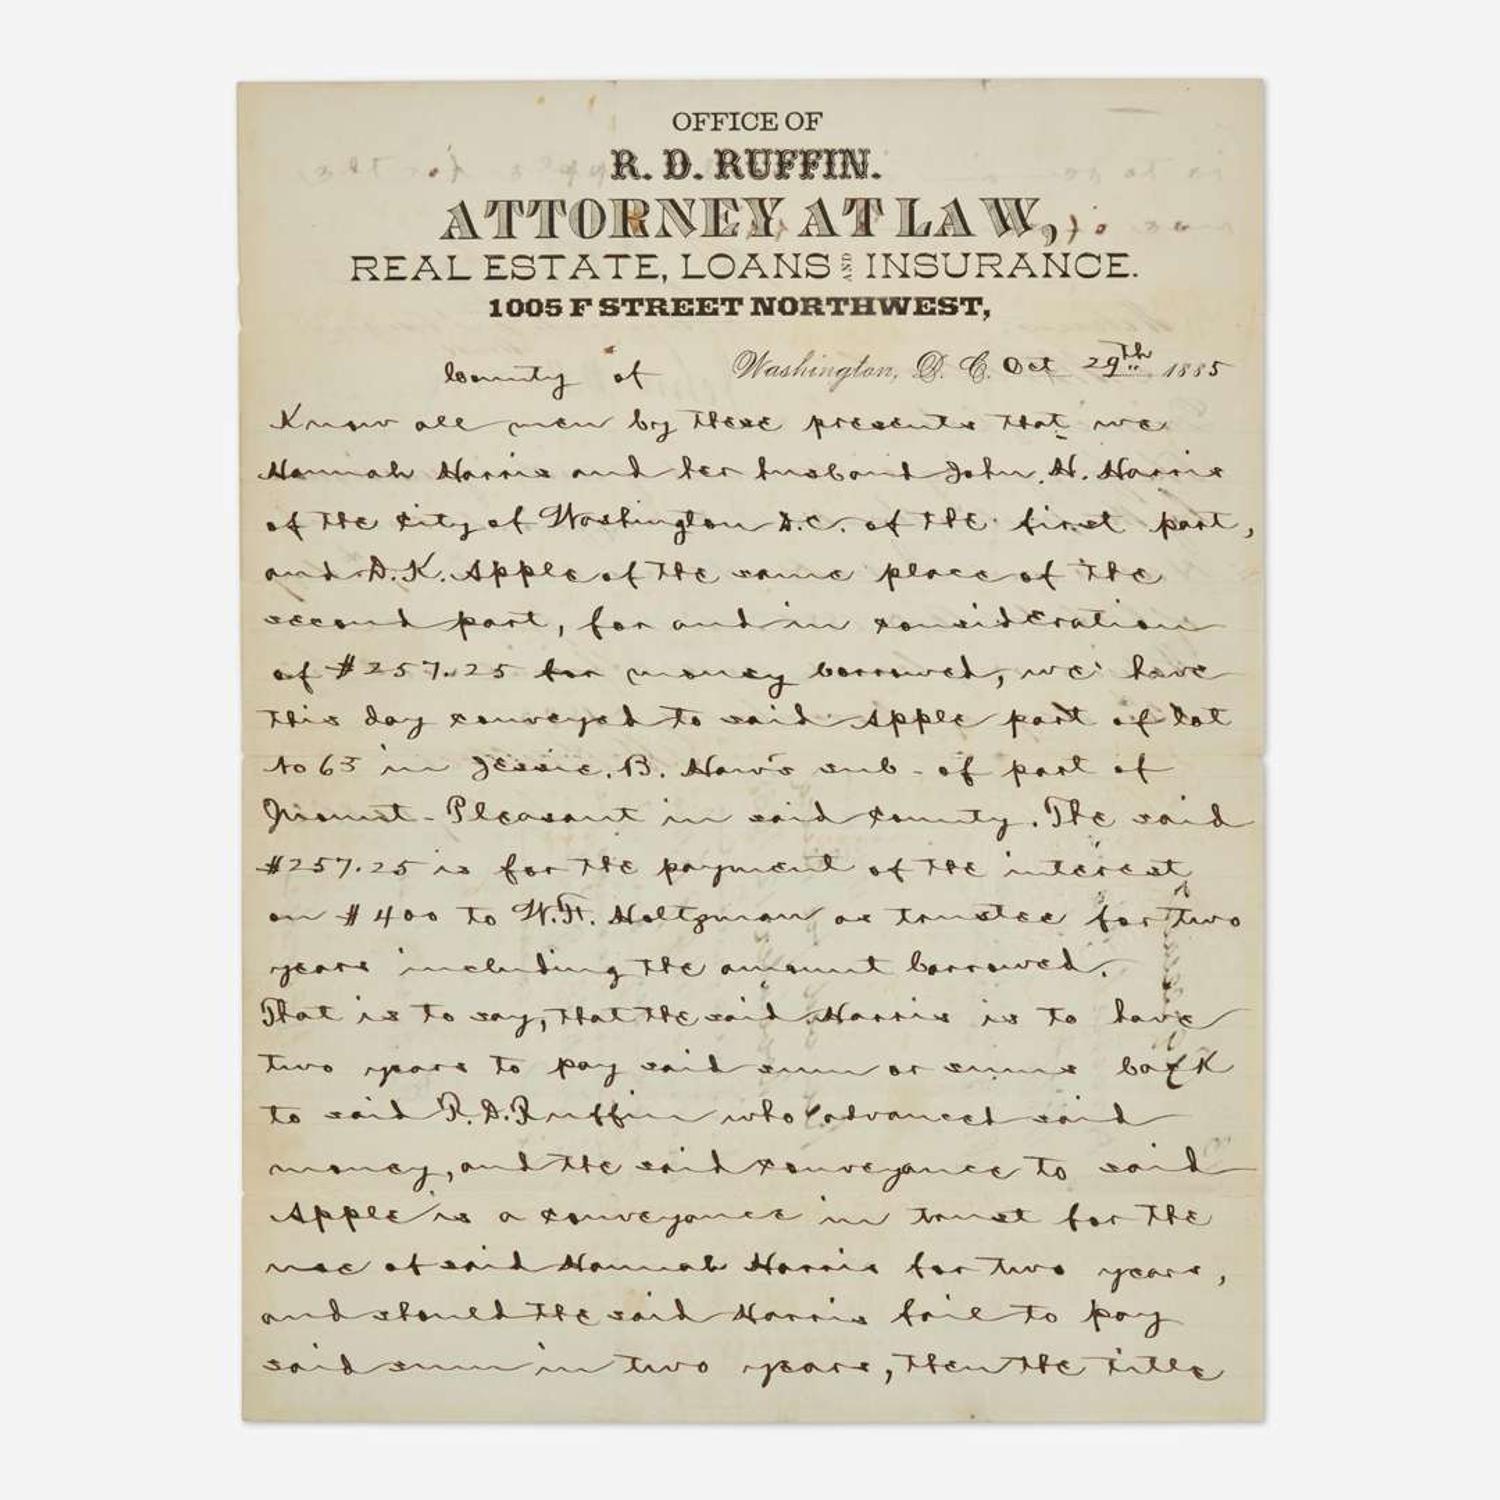 OFFICE OF
R. D. RUFFIN.
ATTORNEY AT LAW,
REAL ESTATE, LOANS AND INSURANCE.
1005 F STREET NORTHWEST,
County of Washington, D. C. Oct 29th 1885
Know all men by these presents that we
Hannah Harris and her husband John. H. Harris
of the city of Washington D.C. of the first part,
and D.K. Apple of the same place of the
second part, for and in consideration
of $257.25 for money borrowed, we have
this day conveyed to said Apple part of lot
No 63 in Jessie. B. Haw's sub- of part of
Mount-Pleasant in said county. The said
$257.25 is for the payment of the interest
on $400 to W.F. Holtzman as trustee for two
years including the amount borrowed.
That is to say, that the said Harris is to have
two years to pay said sum or sums back
to said R.D. Ruffin who advanced said
money, and the said conveyance to said
Apple is a conveyance in trust for the
use of said Hannah Harris for two years,
and should the said Harris fail to pay
said sum in two years, then the title